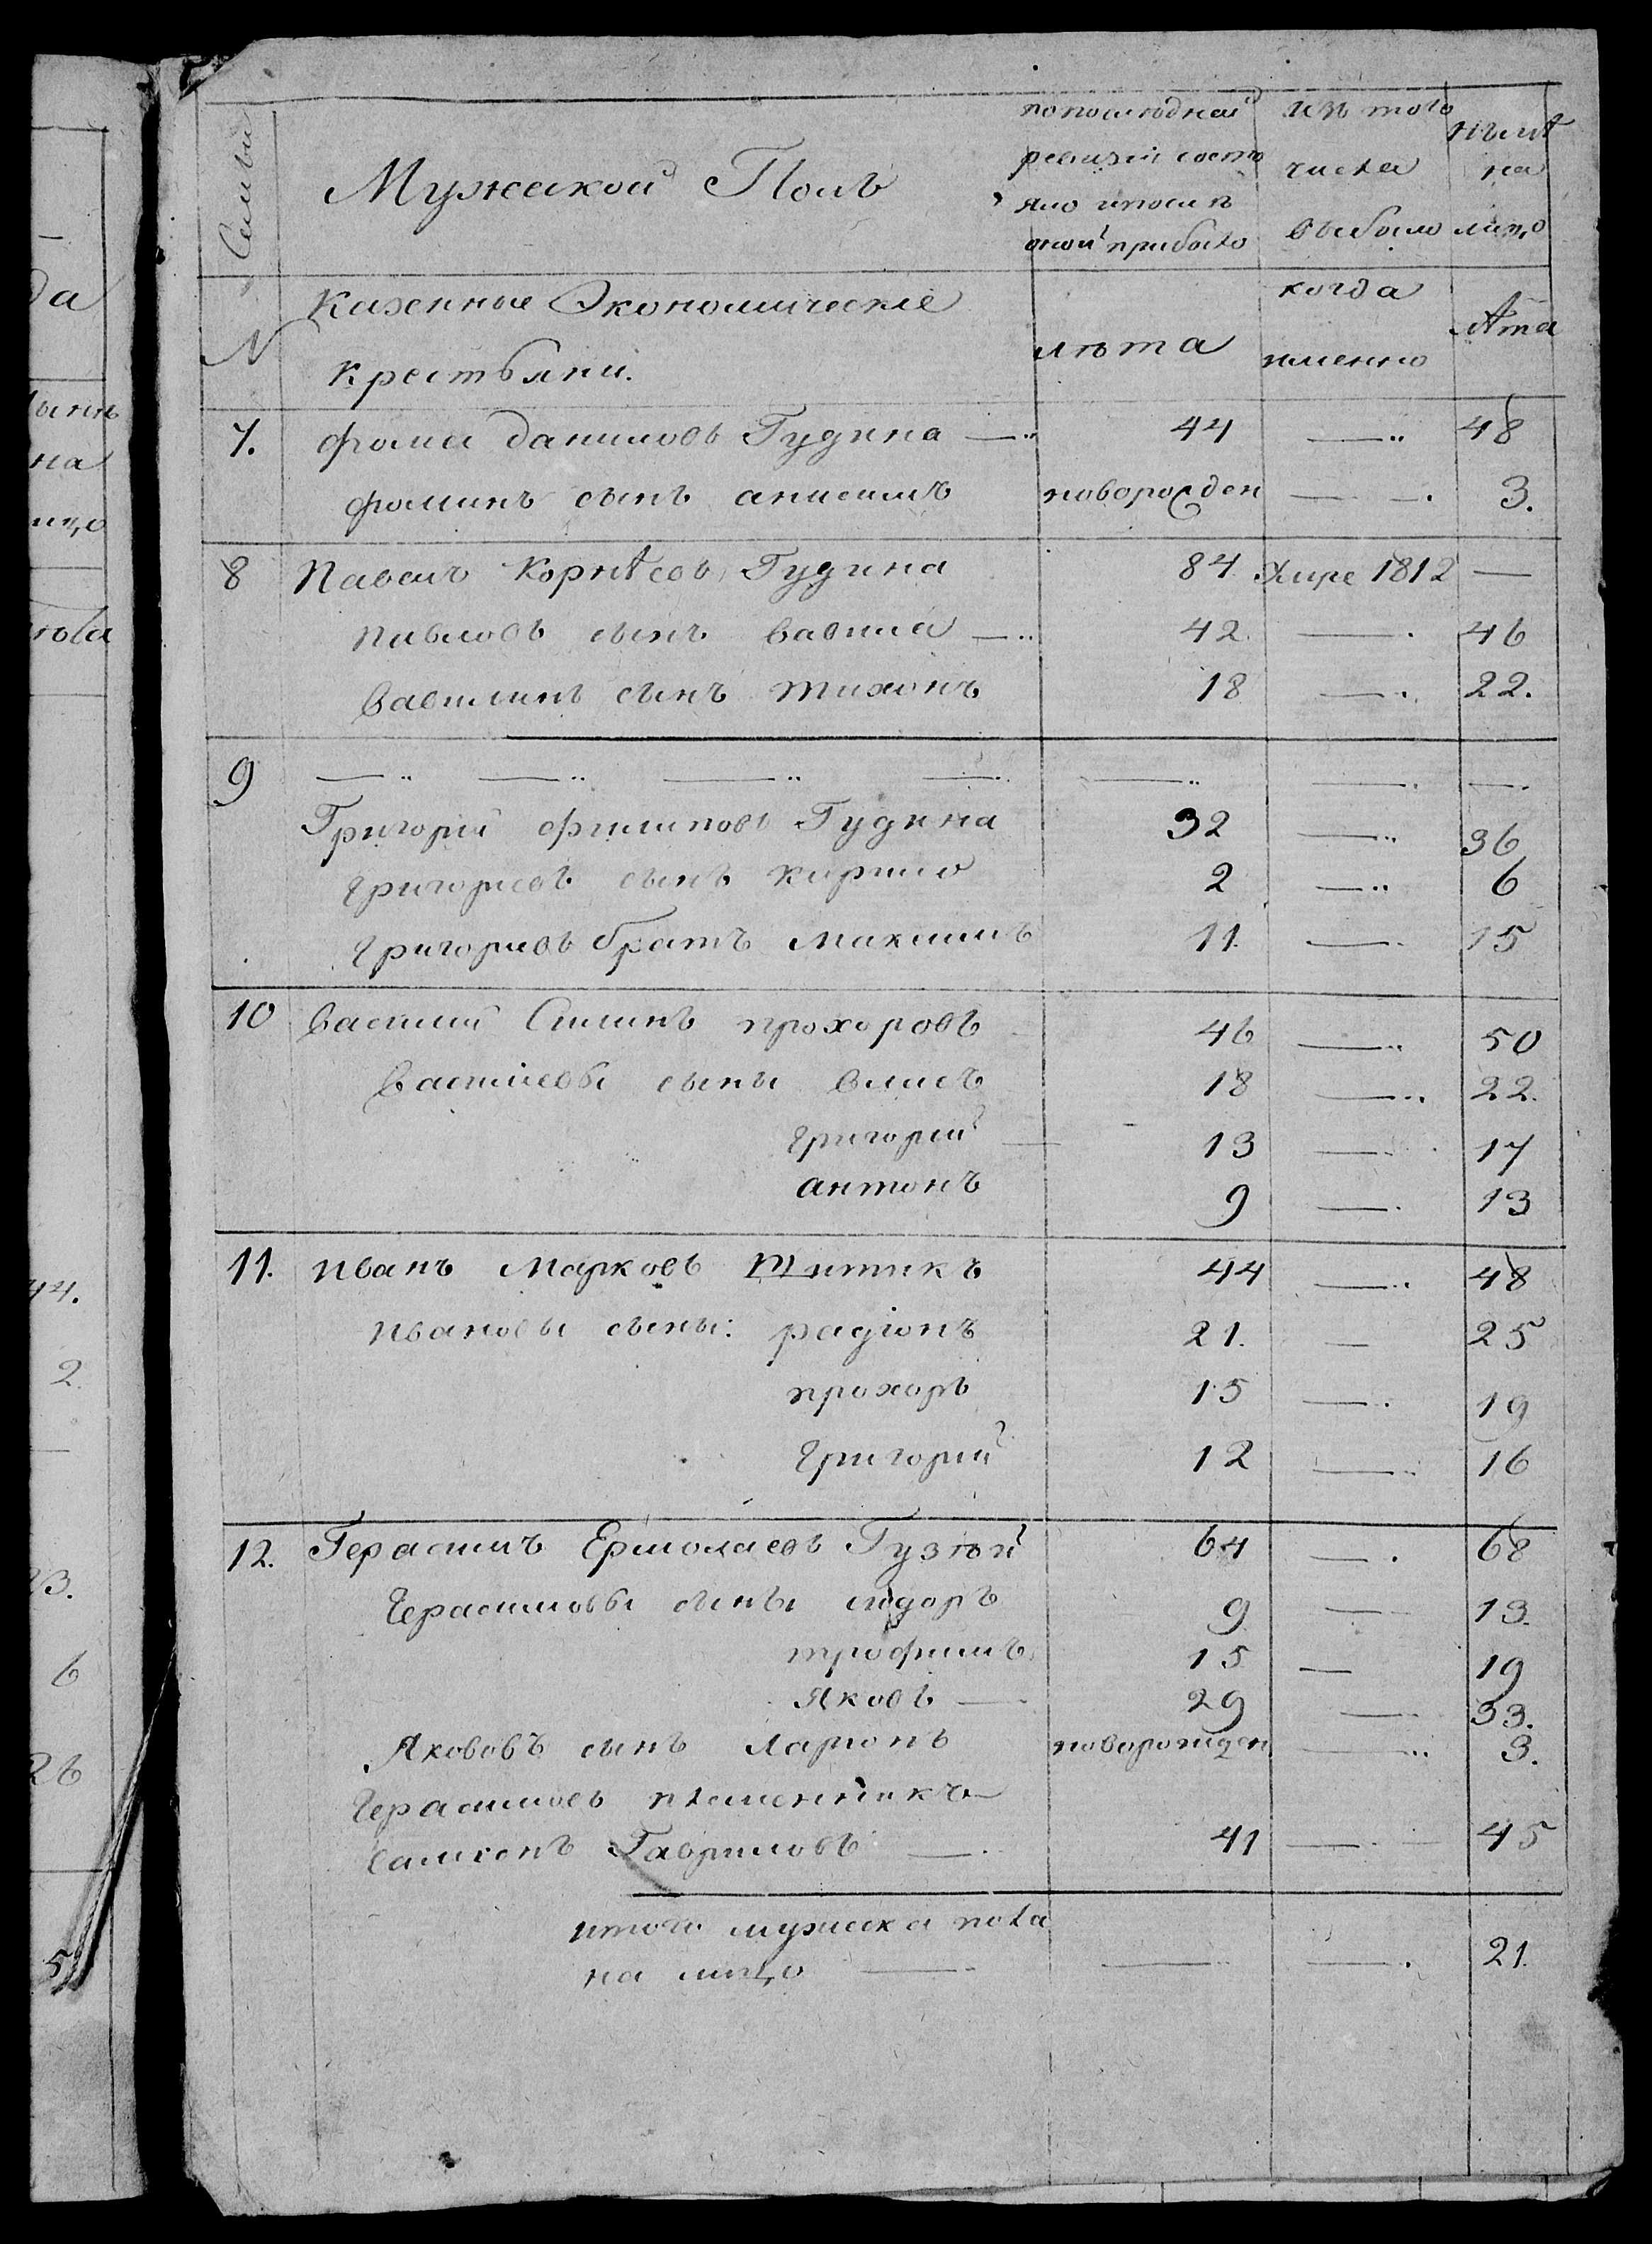 да
на
ицо
44.
2
23.
6
26
5
Семьи
Мужеской Полъ
попоследней
ревизіи состо
яло ипосле
оной прибыло
изъ того
числа
выбыло
ныне
на
лицо
N
Казенные Экономическіе
крестьяни.
лѣта
когда
именно
лѣта
7. фома даниловъ Гудина 44 — 48
фоминъ сынъ анисимъ новорожден — 3.
8 Павелъ Корнѣевъ Гудина 84 Умре 1812 —
павловъ сынъ вавила — 42. — 46
вавилинъ сынъ тихонъ 18 — 22.
9 — — — — — — —
Григорій филиповъ Гудина 32 — 36
григориевъ сынъ кирило 2 — 6
григориевъ братъ максимъ 11. — 15
10 василий Силинъ прохоровъ 46 — 50
василіевы сыны власъ 18 — 22.
григорий — 13 — 17
антонъ 9 — 13
11. иванъ марковъ титикъ 44 — 48
ивановы сыны: радіонъ 21. — 25
прохоръ 15 — 19
григорий 12 — 16
12. Герасимъ Ермолаевъ Гузѣй 64 — 68
герасимовы сыны сидоръ 9 — 13.
трофимъ 15 — 19
яковъ — 29 — 33.
Яковъ сынъ ларионъ новорожден — 3.
герасимовъ племенникъ
самсонъ Гавриловъ — 41 — 45
итого мужеска пола
на лицо — — — 21.